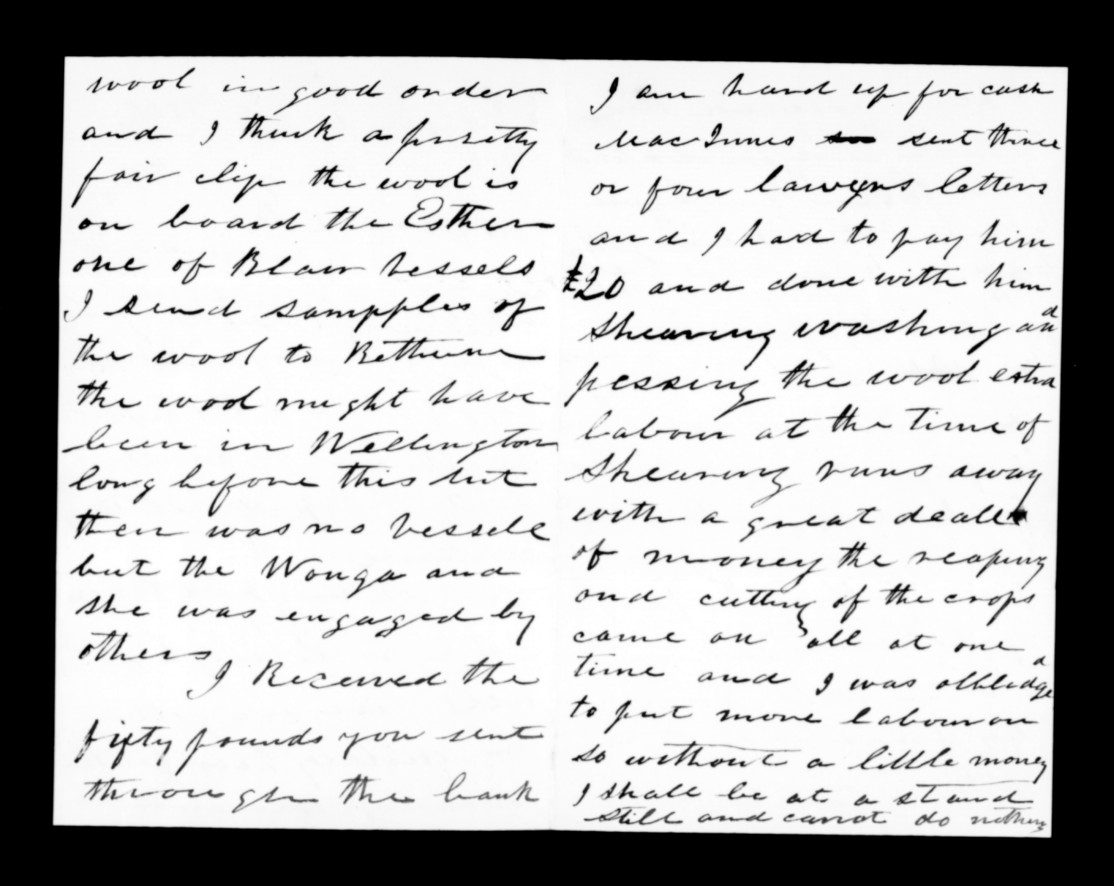 wool in good order
and I think a pretty
fair clip the wool is
on board the Esther
one of Blair vessels
I send sampples of
the wool to Bethune
the wool might have
been in Wellington
long before this but
ther was no vessele
but the Wonga and
she was engaged by
others
I Received the
fifty pounds you sent
through the bank
I am hard up for cash
MacInnes sent three
or four lawyers letters
and I had to pay him
£20 and done with him
Shearing washing and
pessing the wool extra
labour at the time of
Shearing runs away
with a great deale
of money the reaping
and cutting of the crops
came on all at one
time and I was obblidged
to put more labour on
so without a little money
I shall be at a stand
still and canot do nothing